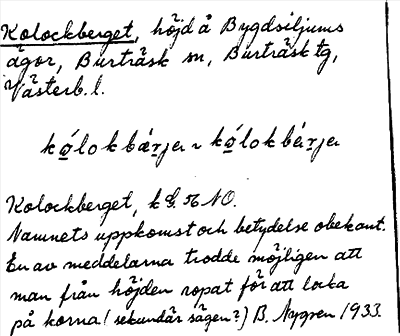 Kolockberget, höjd å Bygdsiljums
ägor, Burträsk sn, Burträsk tg,
Västerb. l.
kọ́lokbærjer ~ kọ́lokbérjer
Kolockberget, k G. 56 NO.
Namnets uppkomst och betydelse obekant.
En av meddelarna trodde möjligen att
man från höjden ropat för att locka
på korna (sekundär sägen?) B. Nygren 1933.